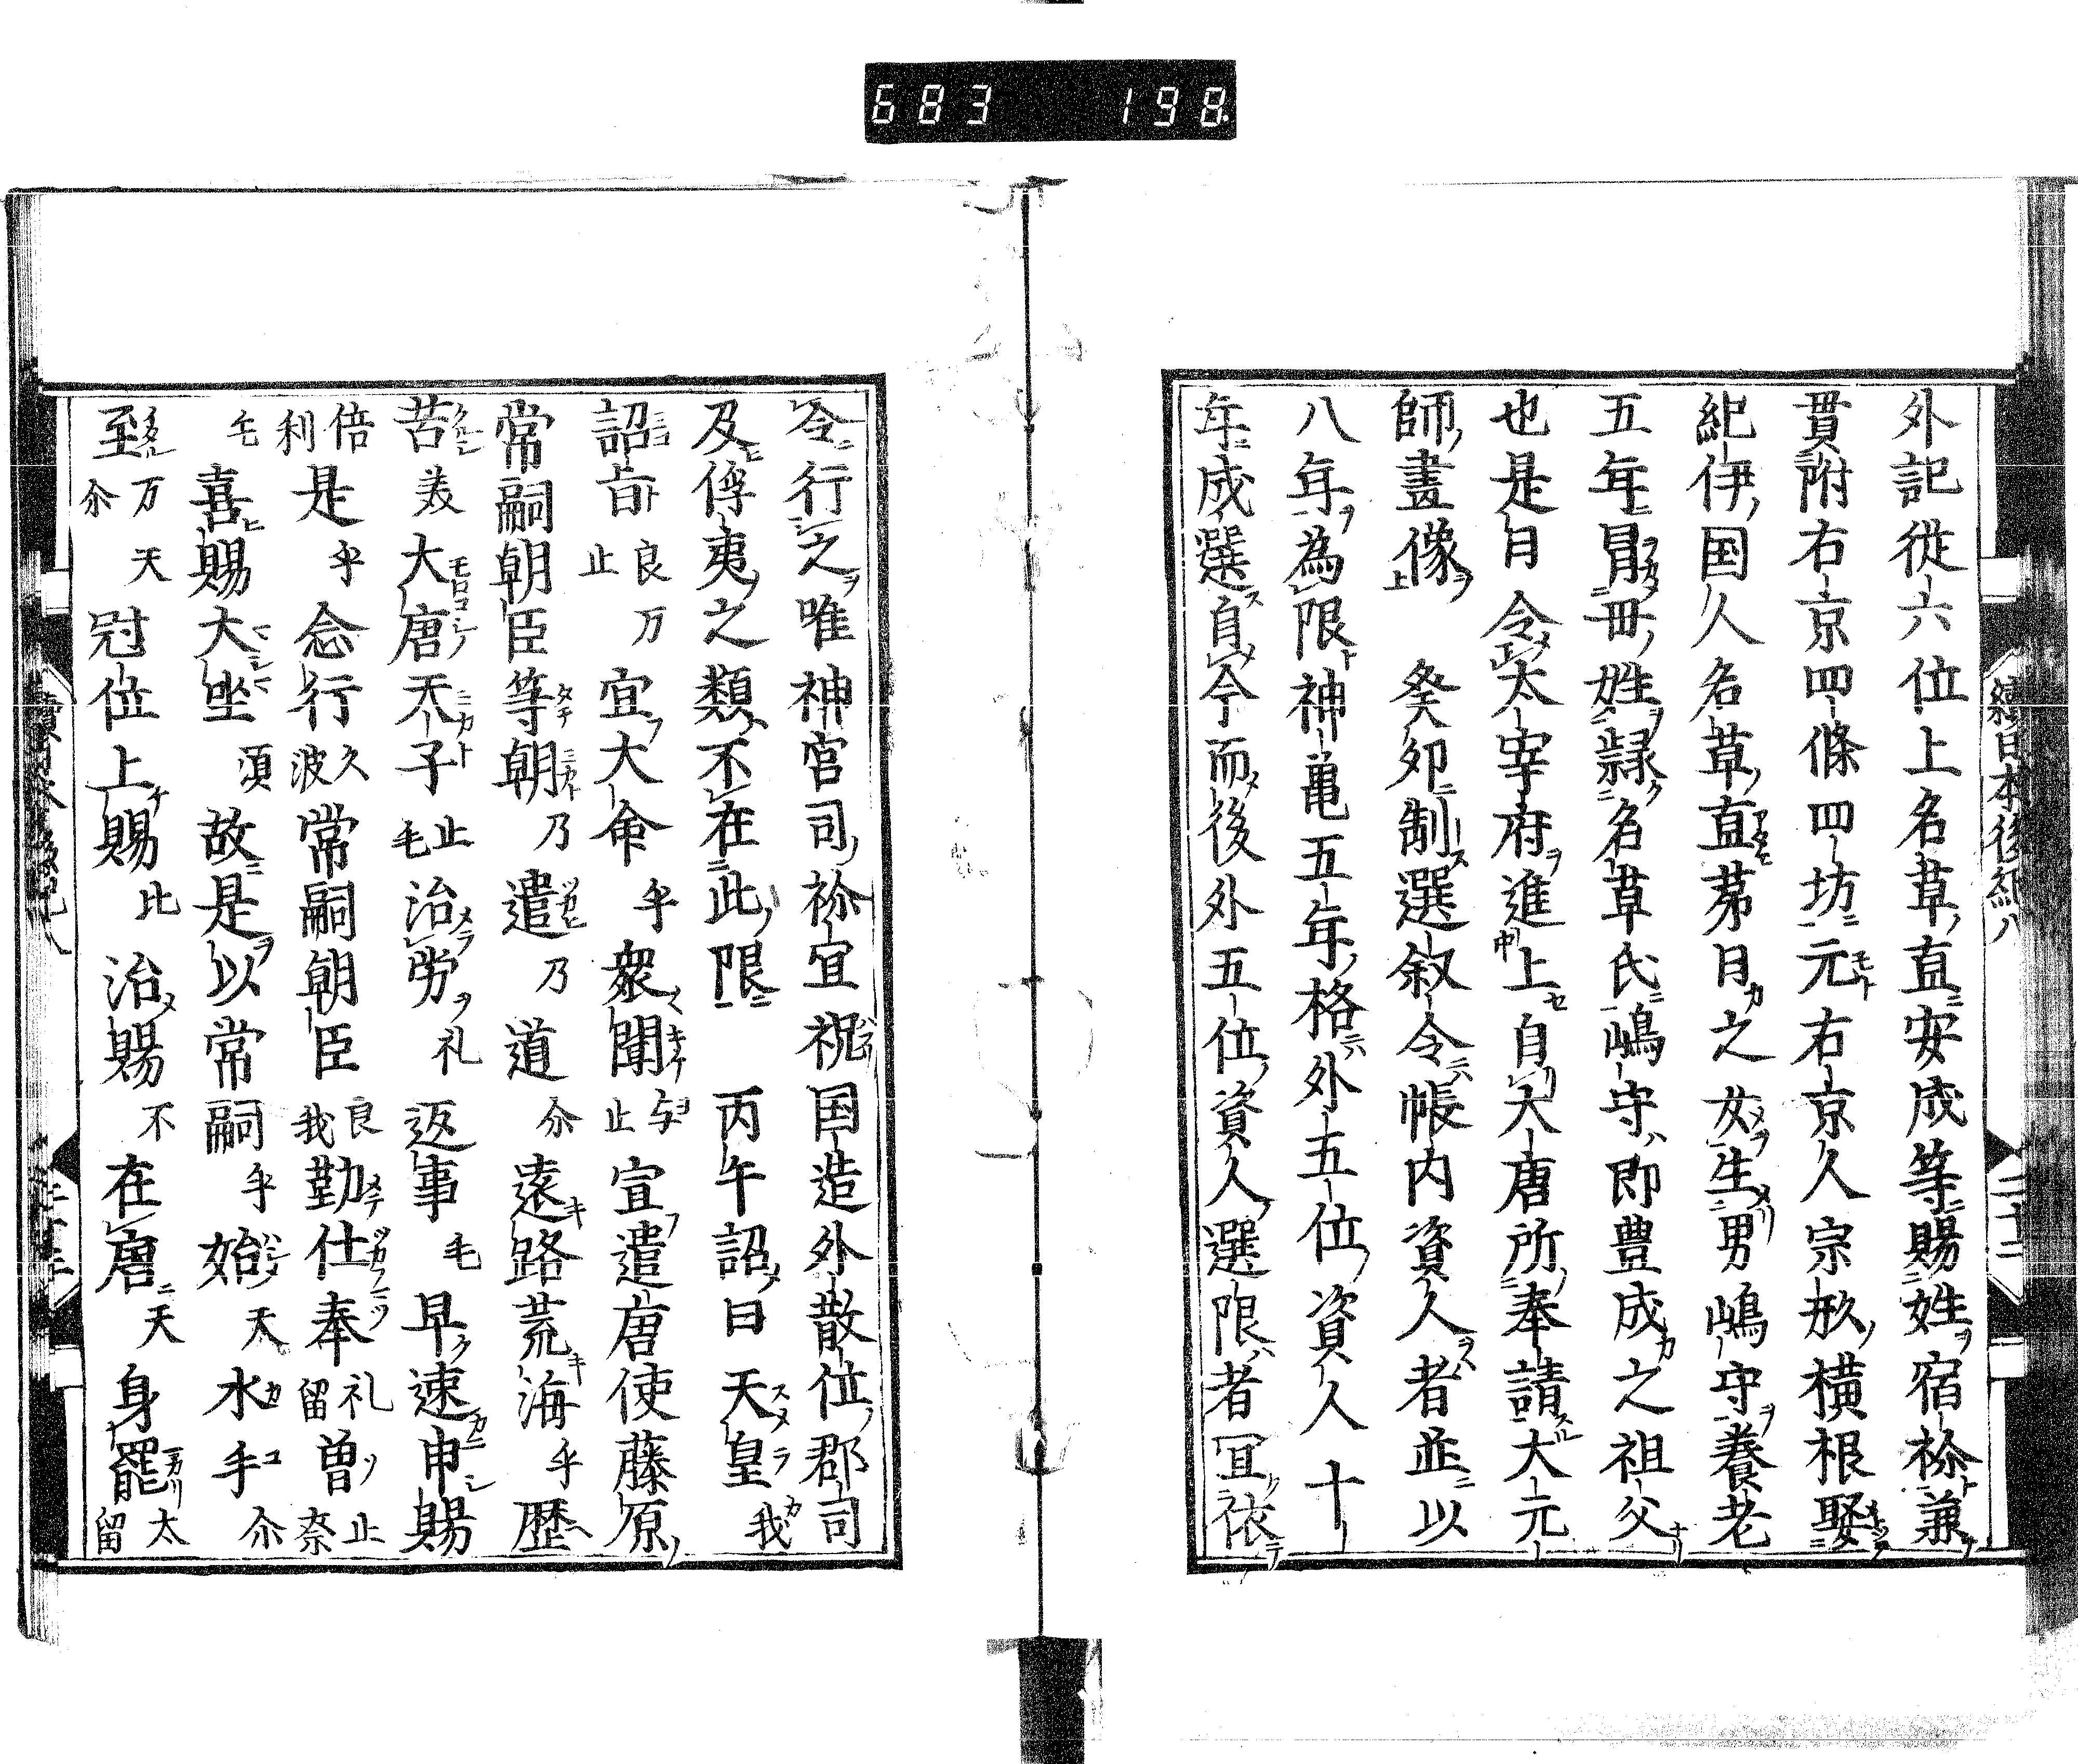 683 198
續日本後紀八
二十二
外記従六位上名草直安成等賜姓宿祢兼
貫附右京四條四坊元右京人宗形横根娶
紀伊国人名草直弟日之女生男嶋守養老
五年冒母姓隷名草氏嶋守即豊成之祖父
也是日令太宰府進上自大唐所奉請大元
師畫像 癸夘制選叙令帳内資人者並以
八年為限神亀五年格外五位資人十
年成選自今而後外五位資人選限者宜依
令行之唯神宮司祢宜祝国造外散位郡司
及俘夷之類不在此限 丙午詔曰天皇我
詔旨良万止宣大命乎衆聞与止宣遣唐使藤原
常嗣朝臣等朝乃遣乃道尒遠路荒海乎歴
苦美大唐天子止毛治労礼返事毛早速申賜
倍利是乎念行久波常嗣朝臣良我勤仕奉礼留曽止奈
毛喜賜大坐須故是以常嗣乎始天水手尒
至万天尒冠位上賜比治賜不在唐天身罷太留